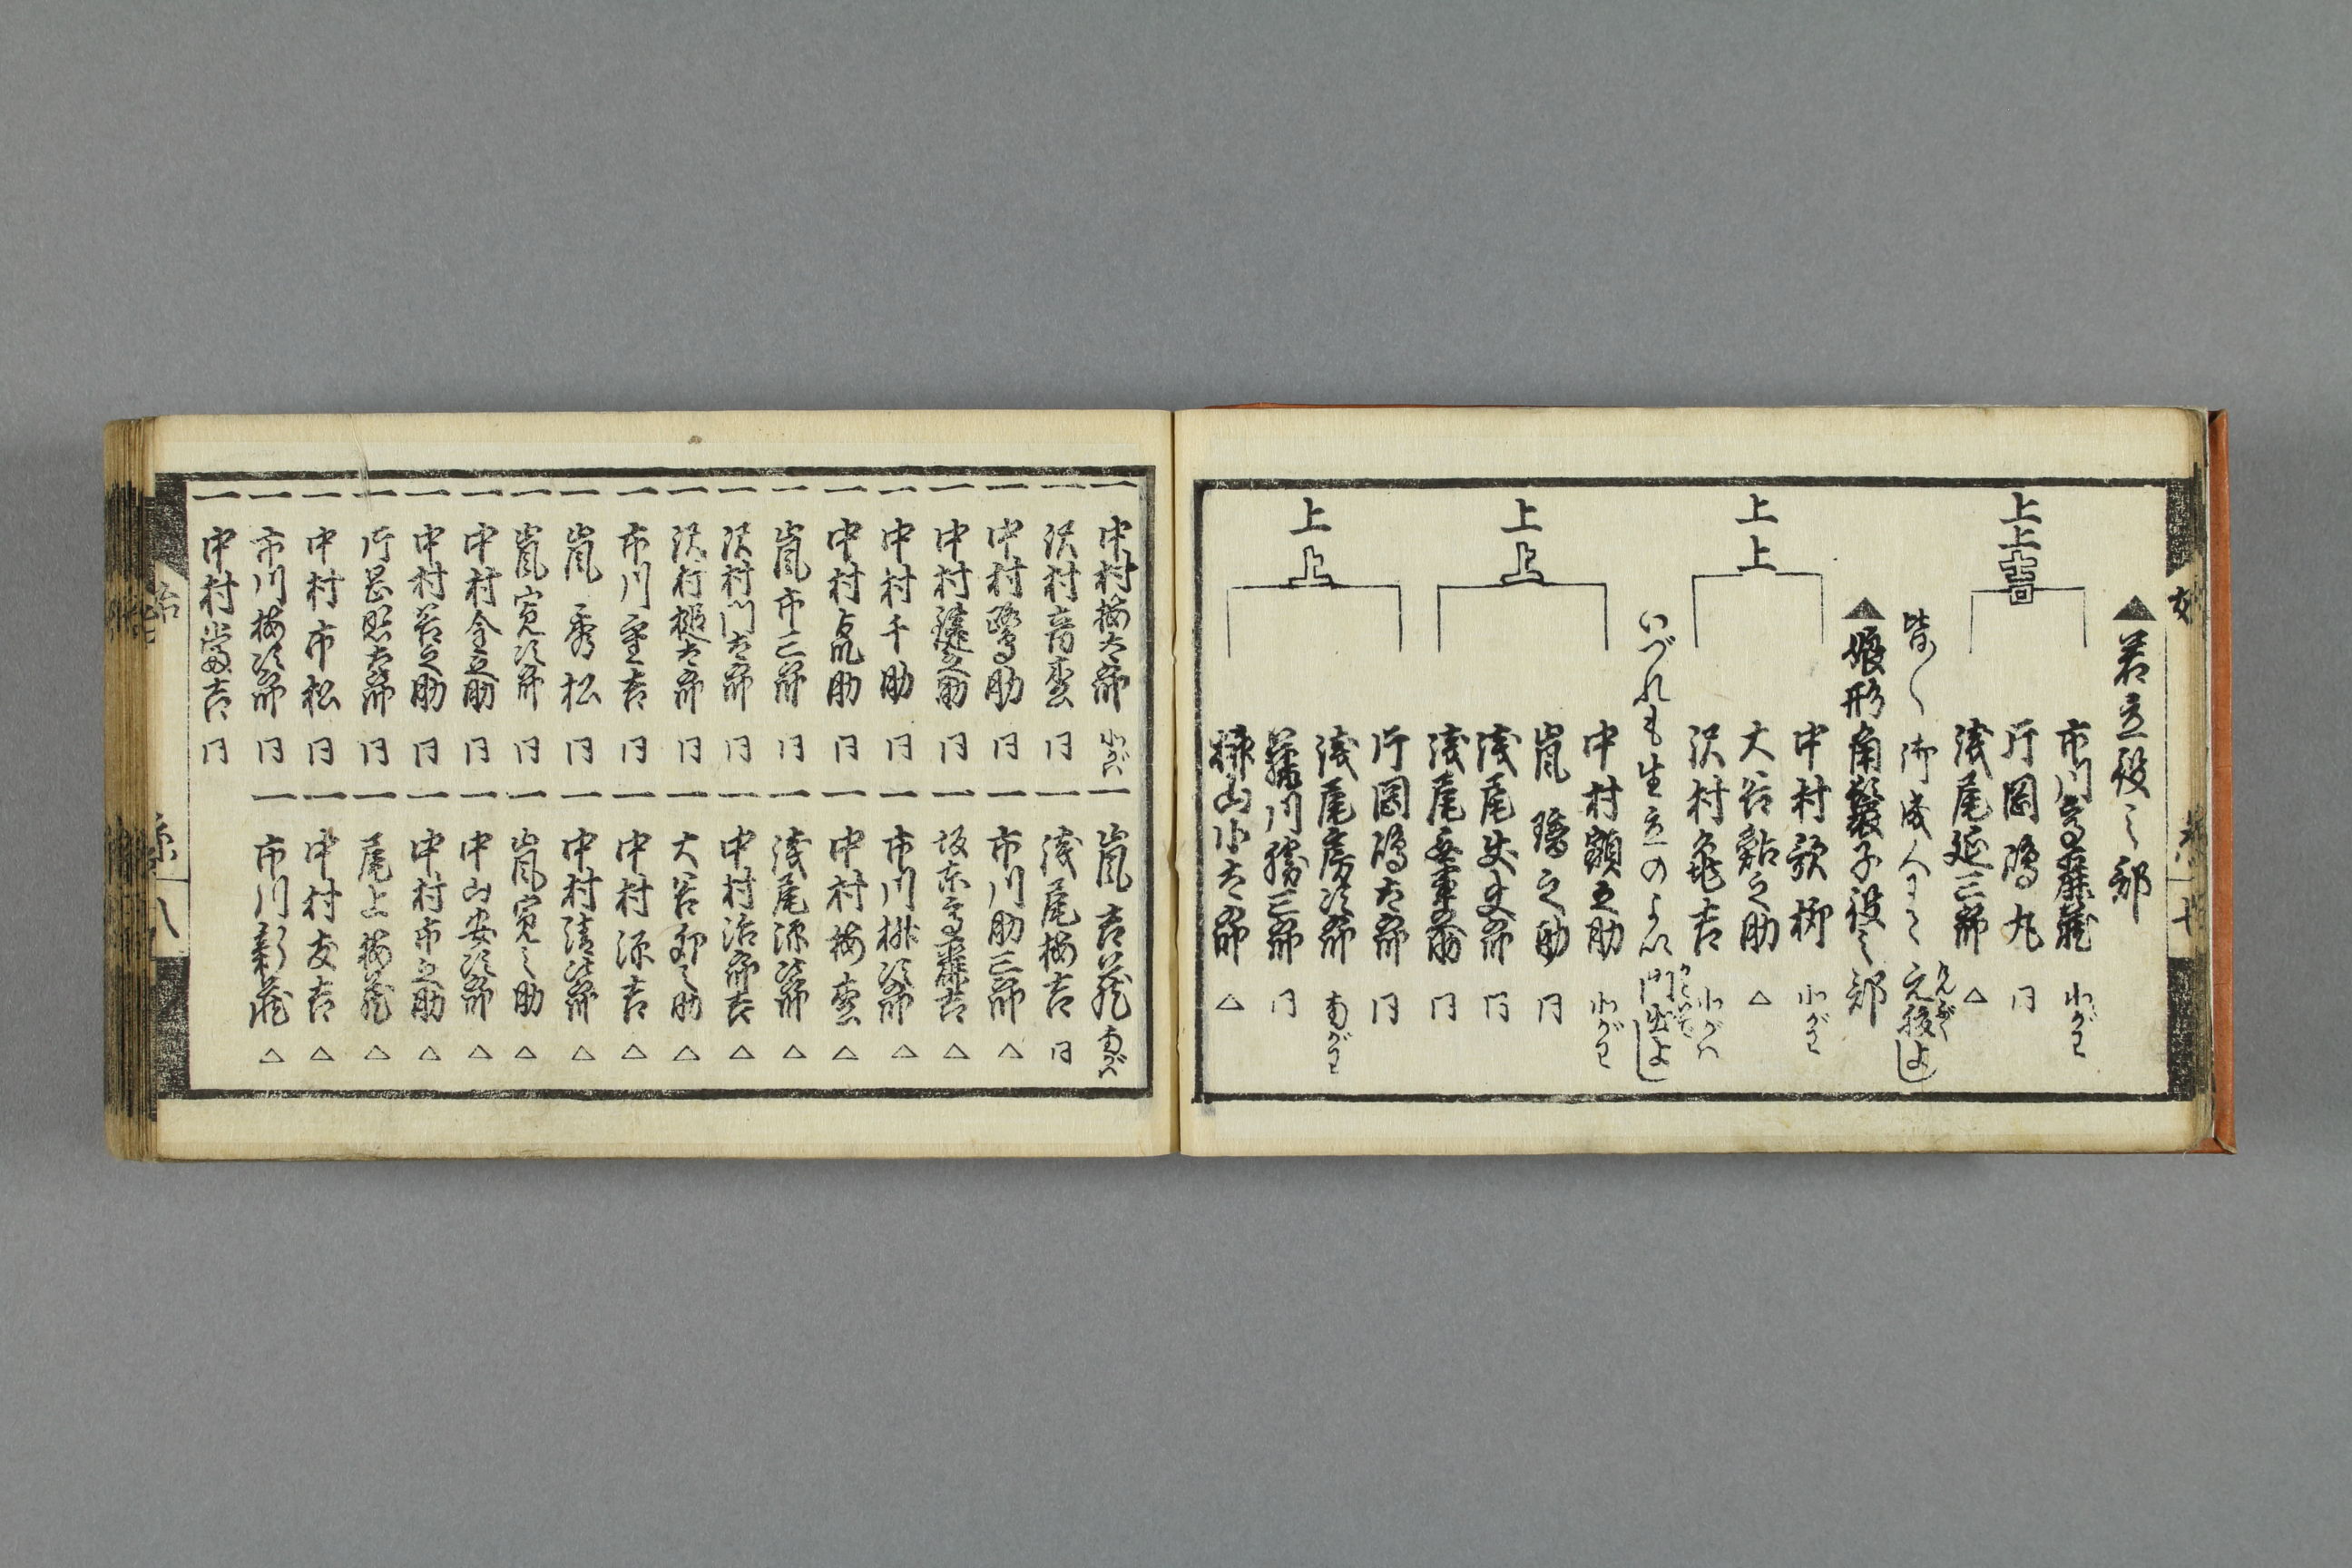 ▲若立役之部
上上吉
市川高麗蔵 北がわ
片岡鴻丸 同
浅尾延三郎 △
皆〱御成人にて元服しよ
▲娘形角鬘子役之部
上上
中村歌柳 北がわ
大谷鮎之助 △
沢村亀吉 北がハ
いづれも生立のよい門出しよ
上上
中村額之助 北がわ
嵐璃之助 同
浅尾丈太郎 同
浅尾 同
上上
片岡鴻太郎 同
浅尾房次郎 南がわ
藤川勝三郎 同
山小太郎 △
一中村梅太郎 北がハ
一沢村音松 同
一中村鷺助 同
一中村之助 同
一中村千助 同
一中村点助 同
一嵐市三郎 同
一沢村門太郎 同
一沢村太郎 同
一市川重吉 同
一嵐秀松 同
一嵐寛次郎 同
一中村金之助 同
一中村若之助 同
一片岡照太郎 同
一中村市松 同
一市川梅次郎 同
一中村富吉 同
一嵐吉蔵 南がハ
一浅尾梅吉 同
一市川助三郎 △
一坂東高麗吉 △
一市川桃次郎 △
一中村梅松 △
一浅尾源次郎 △
一中村治郎吉 △
一大谷卯之助 △
一中村源吉 △
一中村清次郎 △
一嵐寛之助 △
一中山安次郎 △
一中村市之助 △
一尾上梅蔵 △
一中村友吉 △
一市川新蔵 △
八